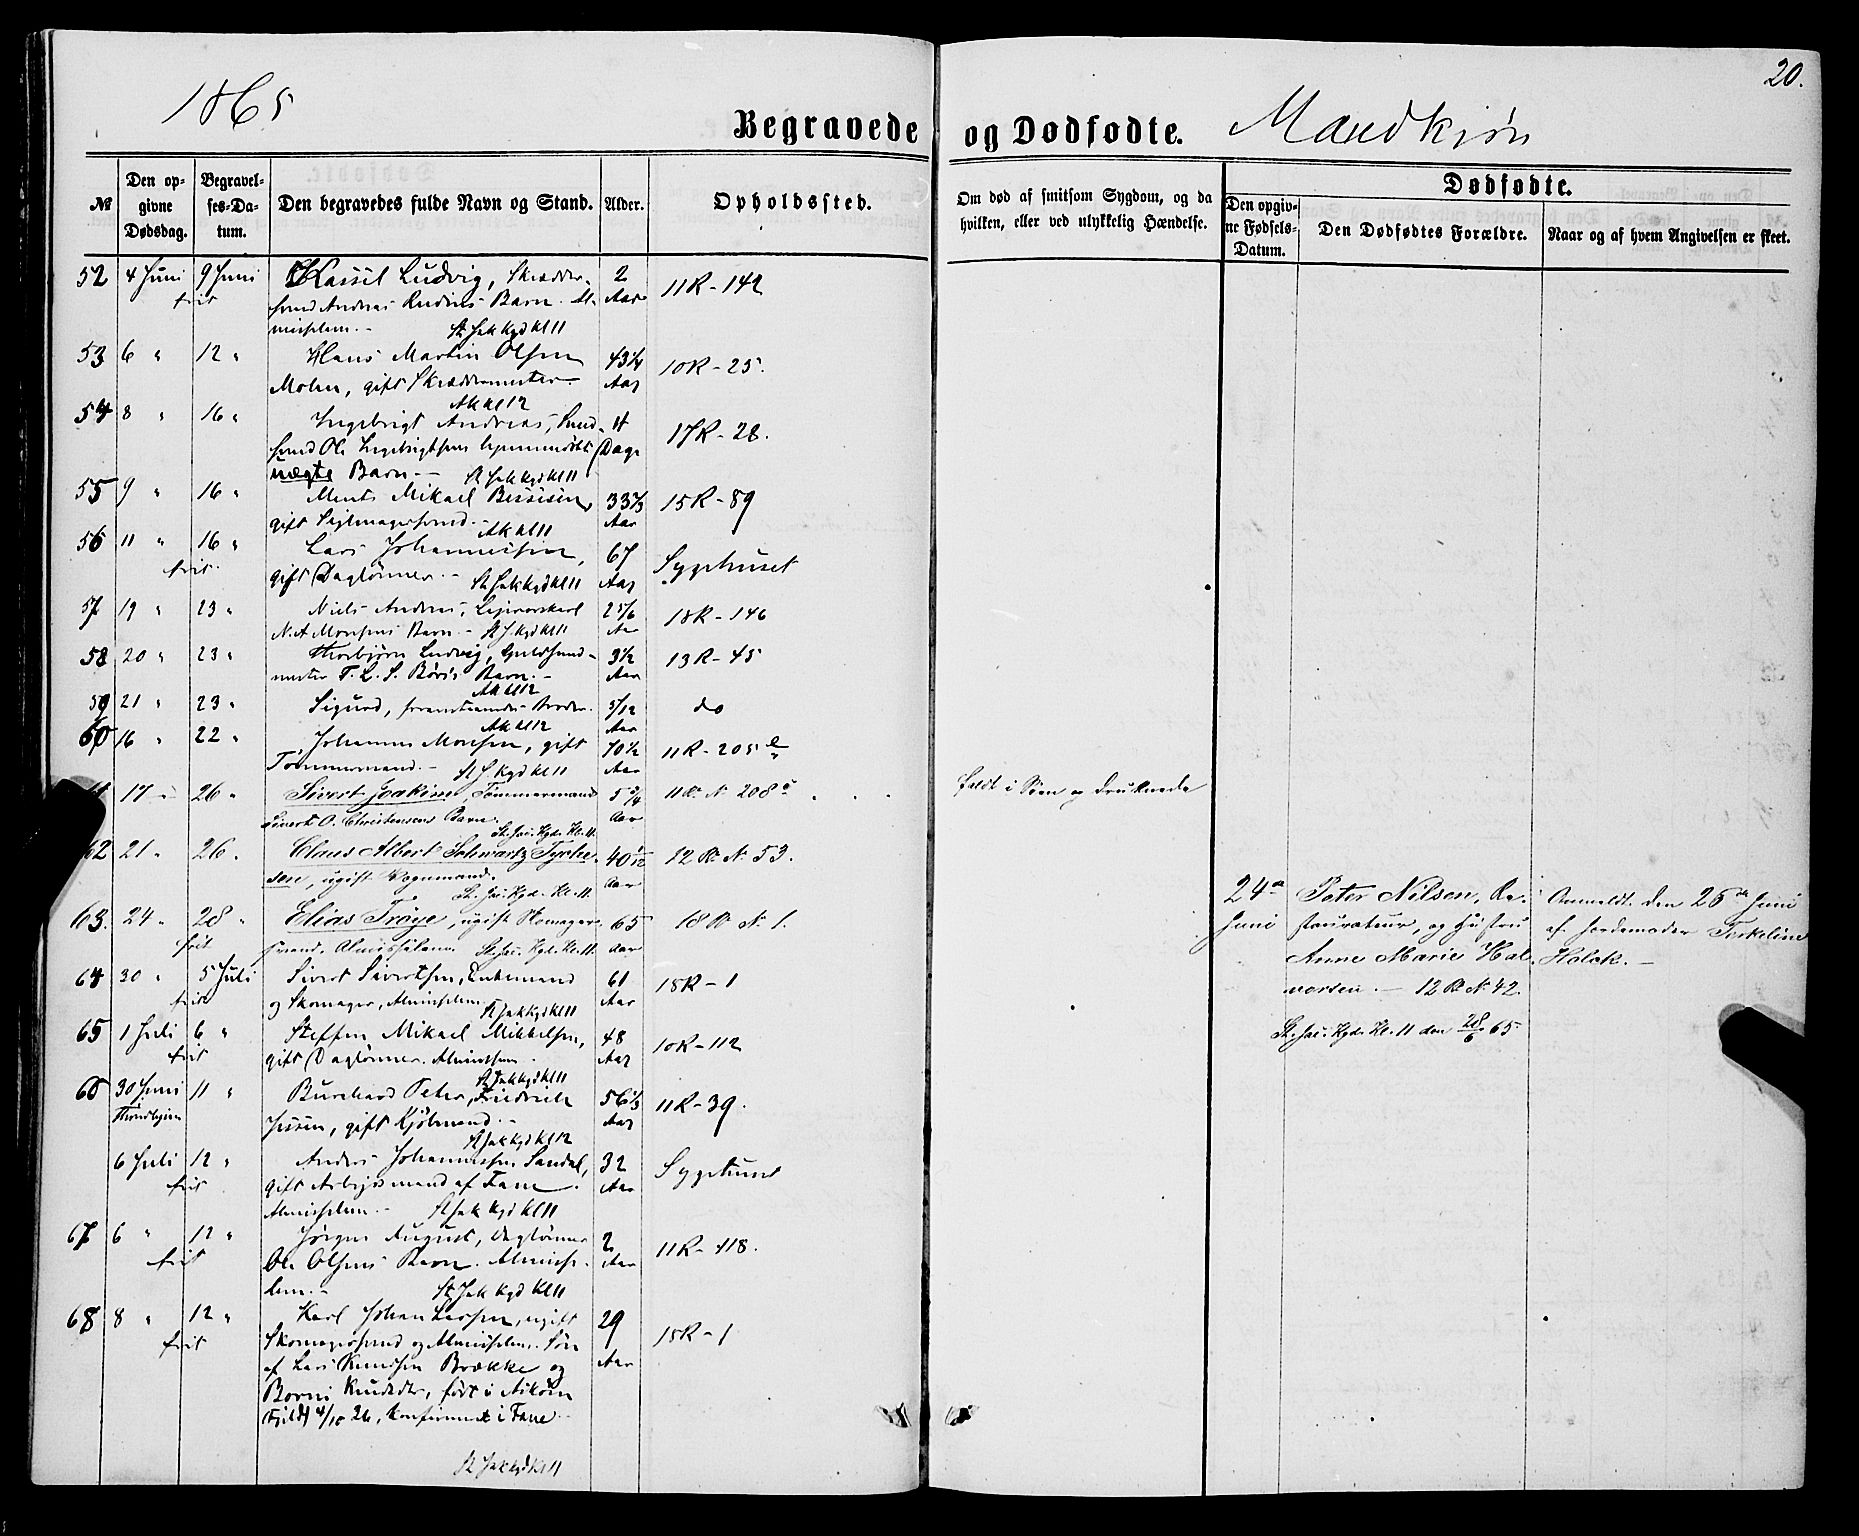 1865
Begravede og Dødfødte. Mandkjøn
20.
№ Den opgivne Dødsdag. Begravelses-Datum. Den begravedes fulde Navn og Stand. Alder. Opholdssted. Om død af smitsom Sygdom, og da hvilken, eller ved ulykkelig Hændelse.
Dødfødte.
Den opgivne Fødsels-Datum. Den Dødfødtes Forældre. Naar og af hvem Angivelsen er skeet.
52 4 Juni 9 Juni Ludvig, Skrædder- 2 11R-142
frit svend Andreas Barn. Al- Aar
St Jak Kgd Kl 11
53 6 " 12 " Hans Martin Olsen 43 1/4 10R-25.
gift Skræddermester Aar
Ak kl 12
54 8 " 16 " Ingebrigt Andreas, 11 17R-28.
svend Ole Ingebrigtsens Dage
uægte Barn. St Jak kgd kl 11
55 9 " 16 " Ments Mikael 33 15R-89
gift Aar
Ak kl 11
56 11 " 16 " Lars Johannessen, 67 Sygehuset
frit gift Dagtønner. St Jak kgd kl 11 Aar
57 19 " 23 " Niels Andreas, 2 5/6 18R-146
N. A Monsens Barn. St J. kgd kl 11 Aar
58 20 " 23 " Thorbjørn Ludvig, Guldsmed- 3 1/2 13R-45
mester T. L. S. Barn. Aar
Ak kl 12
59 21 " 23 " Sigurd, Broder. 5/12 do
Ak kl 12 Aar
60 16 " 22 " Johannes Monsen, gift 70 1/2 11R-205
Tømmermand. St J kgd kl 11 Aar
17 " 26 " Sivert Joakim, Tømmermand 5 3/4 11 R. N. 208 faldt i Søen og druknede
Sivert O. Christensens Barn. Aar
St. Jac. Kgd. Kl. 11.
62 21 " 26 " Claus Albert Schwartz 40 12 R. N. 53.
ugift Vognmand. Aar
St. Jac. Kgd. Kl. 11.
63. 24 " 28 " Elias Trøye, ugift Skomager- 65 18 R. N. 1.
frit svend. Almisselem. St. Jac. Kgd. Kl. 11. Aar
24de Juni
Peter Nilsen, Re-
staurateur, og Hustru
Anne Marie Hal-
vorsen. — 12 R. N. 42.
St. Jac. Kgd. Kl. 11 den 28/6 65
Anmeldt den 26de Juni
af Jordemoder Torkeline
Holck. —
64 30 " 5 Juli Sivert Sivertsen, Enkemand 61 18R-1
frit og Skomager, Almisselem. Aar
St Jak kgd kl 11
65 1 Juli 6 " Steffen Mikael Mikkelsen, 48 10R-112
frit gift Dagtønner. Almisselem. Aar
St Jak kgd kl 11
66 30 Juni 11 " Burchard Peter Friedrich 56 1/3 11R-39.
Jessen, gift Kjøbmand. Aar
St Jak kgd kl 12
6 Juli 12 " Anders Johannessen Sandal, 32 Sygehuset
frit gift Arbejdsmand af Fane. Aar
Almisselem. St Jak kgd kl 11
67 6 " 12 " Jørgen August, Dagtønner 2 11R-118.
frit Ole Olsens Barn. Almisse- Aar
lem. St Jak kgd kl 11
68 8 " 12 " Karl Johan Larsen, ugift 29 18R-1
frit Skomagersvend og Almisselem. Søn Aar
af Lars Knudsen Brække og
Knudsdtr, født i
4/10 36, konfirmeret i Fane
St Jak kgd kl 11